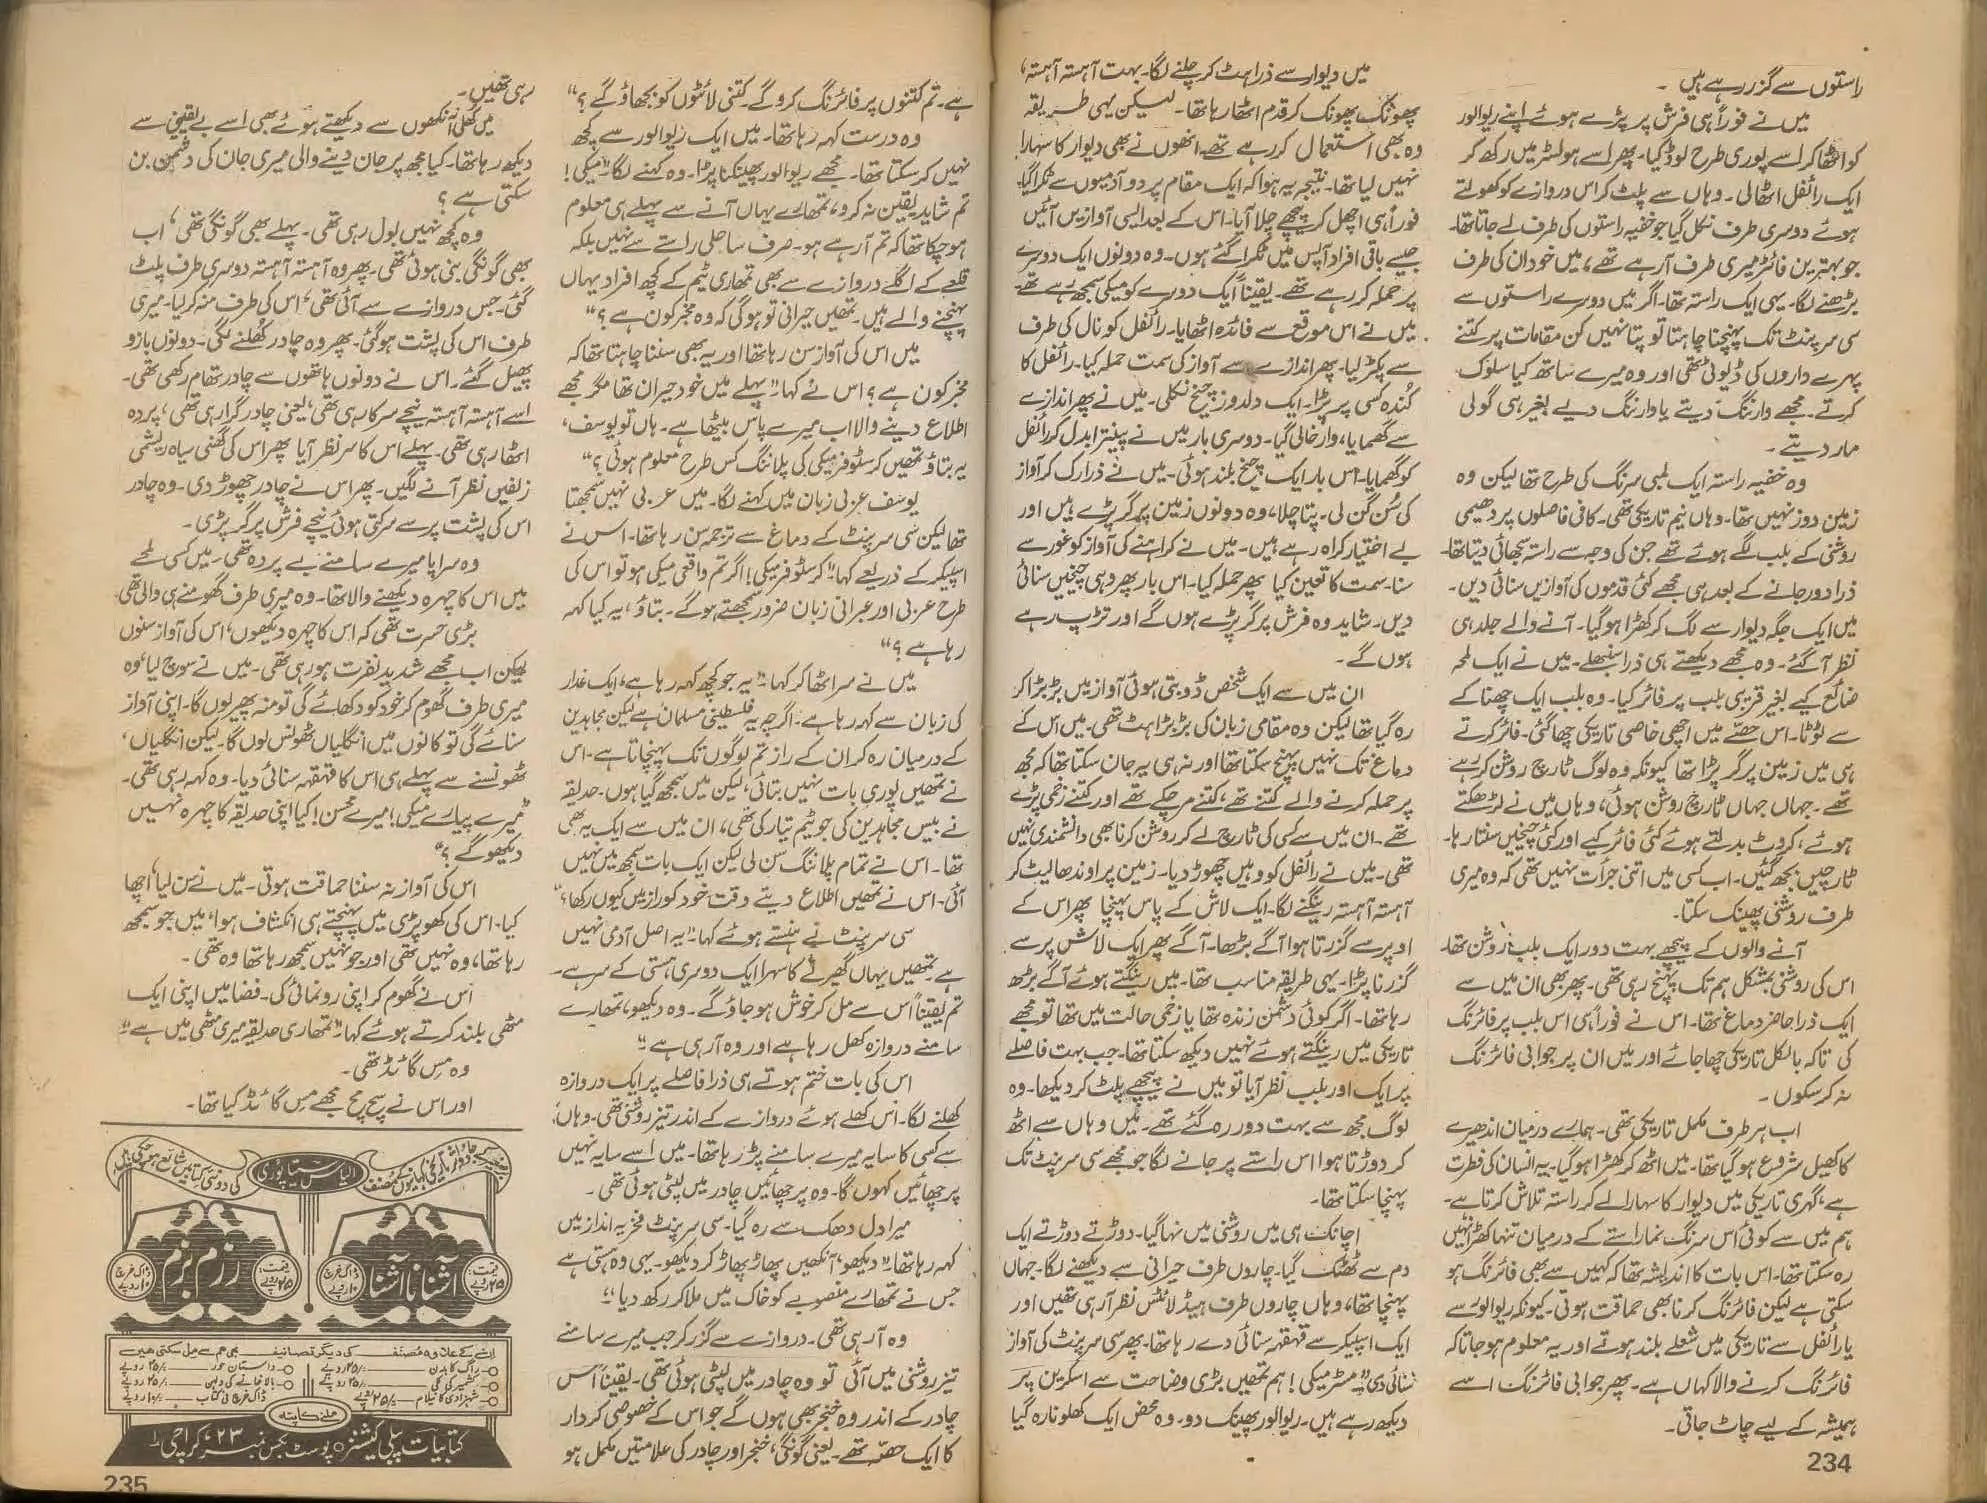 راستوں سے گزر رہے ہیں ۔
میں نے فوراً ہی فرش پر پڑے ہوئے اپنے ریوالور
کو اٹھا کر اسے پوری طرح لوڈ کیا۔ پھر اسے ہولسٹر میں رکھ کر
ایک رائفل اٹھالی ۔ وہاں سے پلٹ کر اس دروازے کو کھولتے
ہوئے دوسری طرف نکل گیا جو خفیہ راستوں کی طرف لے جاتا تھا۔
جو بہترین فائٹر میری طرف آرہے تھے، میں خود ان کی طرف
بڑھنے لگا۔ یہی ایک راستہ تھا۔ اگر میں دوسرے راستوں سے
سی سرپنٹ تک پہنچنا چاہتا تو پتا نہیں کن مقامات پر کتنے
پہرے داروں کی ڈیوٹی تھی اور وہ میرے ساتھ کیا سلوک
کرتے ۔ مجھے وارننگ دیتے یا وارننگ دیے بغیر ہی گولی
مار دیتے ۔
وہ خفیہ راستہ ایک لمبی سرنگ کی طرح تھا لیکن وہ
زمین دوز نہیں تھا۔ وہاں نیم تاریکی تھی۔ کافی فاصلوں پر دھیمی
روشنی کے بلب لگے ہوئے تھے جن کی وجہ سے راستہ سجھائی دیتا تھا۔
ذرا دور جانے کے بعد ہی مجھے کئی قدموں کی آوازیں سنائی دیں۔
میں ایک جگہ دیوار سے لگ کر کھڑا ہو گیا۔ آنے والے جلد ہی
نظر آ گئے ۔ وہ مجھے دیکھتے ہی ذرا سنبھلے۔ میں نے ایک لمحہ
ضائع کیے بغیر قریبی بلب پر فائر کیا۔ وہ بلب ایک چھناکے
سے ٹوٹا۔ اس حصّے میں اچھی خاصی تاریکی چھاگئی۔ فائر کرتے
ہی میں زمین پر گر پڑا تھا کیونکہ وہ لوگ ٹارچ روشن کر رہے
تھے ۔ جہاں جہاں ٹارچ روشن ہوئی، وہاں میں نے لڑھکتے
ہوئے، کروٹ بدلتے ہوئے کئی فائر کیے اور کئی چیخیں سنتا رہا۔
ٹارچیں بجھ گئیں ۔ اب کسی میں اتنی جرأت نہیں تھی کہ وہ میری
طرف روشنی پھینک سکتا۔
آنے والوں کے پیچھے بہت دور ایک بلب روشن تھا۔
اس کی روشنی بمشکل ہم تک پہنچ رہی تھی۔ پھر بھی ان میں سے
ایک ذرا حاضر دماغ تھا۔ اس نے فوراً ہی اس بلب پر فائرنگ
کی تاکہ بالکل تاریکی چھا جائے اور میں ان پر جوابی فائرنگ
نہ کر سکوں ۔
اب ہر طرف مکمل تاریکی تھی۔ ہمارے درمیان اندھیرے
کا کھیل شروع ہو گیا تھا۔ میں اٹھ کر کھڑا ہو گیا۔ یہ انسان کی فطرت
ہے، گہری تاریکی میں دیوار کا سہارا لے کر راستہ تلاش کرتا ہے۔
ہم میں سے کوئی اس سرنگ نما راستے کے درمیان تنہا کھڑا نہیں
رہ سکتا تھا۔ اس بات کا اندیشہ تھا کہ کہیں سے بھی فائرنگ ہو
سکتی ہے لیکن فائرنگ کرنا بھی حماقت ہوتی۔ کیونکہ ریوالور سے
یا رائفل سے تاریکی میں شعلے بلند ہوتے اور یہ معلوم ہو جاتا کہ
فائرنگ کرنے والا کہاں ہے۔ پھر جوابی فائرنگ اسے
ہمیشہ کے لیے چاٹ جاتی۔
234
میں دیوار سے ذرا ہٹ کر چلنے لگا۔ بہت آہستہ آہستہ،
پھونک پھونک کر قدم اٹھا رہا تھا۔ لیکن یہی طریقہ
وہ بھی استعمال کر رہے تھے۔ انھوں نے بھی دیوار کا سہارا
نہیں لیا تھا۔ نتیجہ یہ ہوا کہ ایک مقام پر دو آدمیوں سے ٹکرا گیا۔
فوراً ہی اچھل کر پیچھے چلا آیا۔ اس کے بعد ایسی آوازیں آئیں
جیسے باقی افراد آپس میں ٹکرا گئے ہوں۔ وہ دونوں ایک دوسرے
پر حملہ کر رہے تھے۔ یقیناً ایک دوسرے کو میکی سمجھ رہے تھے۔
میں نے اس موقع سے فائدہ اٹھایا۔ رائفل کو نال کی طرف
سے پکڑ لیا۔ پھر اندازے سے آواز کی سمت حملہ کیا۔ رائفل کا
کُندہ کسی پر پڑا۔ ایک دلدوز چیخ نکلی۔ میں نے پھر اندازے
سے گھمایا، وار خالی گیا۔ دوسری بار میں نے پینترا بدل کر رائفل
کو گھمایا۔ اس بار ایک چیخ بلند ہوئی۔ میں نے ذرا رک کر آواز
کی سُن گن لی۔ پتا چلا، وہ دونوں زمین پر گر پڑے ہیں اور
بے اختیار کراہ رہے ہیں۔ میں نے کراہنے کی آواز کو غور سے
سنا۔ سمت کا تعین کیا پھر حملہ کیا۔ اس بار پھر وہی چیخیں سنائی
دیں۔ شاید وہ فرش پر گر پڑے ہوں گے اور تڑپ رہے
ہوں گے ۔
ان میں سے ایک شخص ڈوبتی ہوئی آواز میں بڑبڑا کر
رہ گیا تھا لیکن وہ مقامی زبان کی بڑبڑاہٹ تھی۔ میں اس کے
دماغ تک نہیں پہنچ سکتا تھا اور نہ ہی یہ جان سکتا تھا کہ مجھ
پر حملہ کرنے والے کتنے تھے، کتنے مر چکے تھے اور کتنے زخمی پڑے
تھے ۔ ان میں سے کسی کی ٹارچ لے کر روشن کرنا بھی دانشمندی نہیں
تھی۔ میں نے رائفل کو وہیں چھوڑ دیا۔ زمین پر اوندھا لیٹ کر
آہستہ آہستہ رینگنے لگا۔ ایک لاش کے پاس پہنچا پھر اس کے
اوپر سے گزرتا ہوا آگے بڑھا۔ آگے پھر ایک لاش پر سے
گزرنا پڑا۔ یہی طریقہ مناسب تھا۔ میں رینگتے ہوئے آگے بڑھ
رہا تھا۔ اگر کوئی دشمن زندہ تھا یا زخمی حالت میں تھا تو مجھے
تاریکی میں رینگتے ہوئے نہیں دیکھ سکتا تھا۔ جب بہت فاصلے
پر ایک اور بلب نظر آیا تو میں نے پیچھے پلٹ کر دیکھا۔ وہ
لوگ مجھ سے بہت دور رہ گئے تھے۔ میں وہاں سے اٹھ
کر دوڑتا ہوا اس راستے پر جانے لگا جو مجھے سی سرپنٹ تک
پہنچا سکتا تھا۔
اچانک ہی میں روشنی میں نہا گیا۔ دوڑتے دوڑتے ایک
دم سے ٹھٹک گیا۔ چاروں طرف حیرانی سے دیکھنے لگا۔ جہاں
پہنچا تھا، وہاں چاروں طرف ہیڈ لائٹس نظر آرہی تھیں اور
ایک اسپیکر سے قہقہہ سنائی دے رہا تھا۔ پھر سی سرپنٹ کی آواز
سنائی دی "مسٹر میکی ! ہم تمھیں بڑی وضاحت سے اسکرین پر
دیکھ رہے ہیں۔ ریوالور پھینک دو۔ وہ محض ایک کھلونا رہ گیا
ہے۔ تم کتنوں پر فائرنگ کرو گے۔ کتنی لائٹوں کو بجھاؤ گے ؟"
وہ درست کہہ رہا تھا۔ میں ایک ریوالور سے کچھ
نہیں کر سکتا تھا۔ مجھے ریوالور پھینکنا پڑا۔ وہ کہنے لگا "میکی !
تم شاید یقین نہ کرو، تمھارے یہاں آنے سے پہلے ہی معلوم
ہو چکا تھا کہ تم آرہے ہو۔ صرف ساحلی راستے سے نہیں بلکہ
قلعے کے اگلے دروازے سے بھی تمھاری ٹیم کے کچھ افراد یہاں
پہنچنے والے ہیں۔ تمھیں حیرانی تو ہو گی کہ وہ مخبر کون ہے ؟"
میں اس کی آواز سن رہا تھا اور یہ بھی سننا چاہتا تھا کہ
مخبر کون ہے ؟ اس نے کہا "پہلے میں خود حیران تھا مگر مجھے
اطلاع دینے والا اب میرے پاس بیٹھا ہے۔ ہاں تو یوسف،
یہ بتاؤ تمھیں کرسٹوفر میکی کی پلاننگ کس طرح معلوم ہوئی ؟"
یوسف عربی زبان میں کہنے لگا۔ میں عربی نہیں سمجھتا
تھا لیکن سی سرپنٹ کے دماغ سے ترجمہ سن رہا تھا۔ اس نے
اسپیکر کے ذریعے کہا "کرسٹوفر میکی! اگر تم واقعی میکی ہو تو اس کی
طرح عربی اور عبرانی زبان ضرور سمجھتے ہو گے۔ بتاؤ، یہ کیا کہہ
رہا ہے ؟"
میں نے سر اٹھا کر کہا "یہ جو کچھ کہہ رہا ہے، ایک غدار
کی زبان سے کہہ رہا ہے۔ اگرچہ یہ فلسطینی مسلمان ہے لیکن مجاہدین
کے درمیان رہ کر ان کے راز تم لوگوں تک پہنچاتا ہے۔ اس
نے تمھیں پوری بات نہیں بتائی، لیکن میں سمجھ گیا ہوں۔ حدیقہ
نے بیس مجاہدین کی جو ٹیم تیار کی تھی، ان میں سے ایک یہ بھی
تھا۔ اس نے تمام پلاننگ سن لی لیکن ایک بات سمجھ میں نہیں
آئی۔ اس نے تمھیں اطلاع دیتے وقت خود کو راز میں کیوں رکھا؟"
سی سرپنٹ نے ہنستے ہوئے کہا "یہ اصل آدمی نہیں
ہے۔ تمھیں یہاں گھیرنے کا سہرا ایک دوسری ہستی کے سر ہے۔
تم یقیناً اس سے مل کر خوش ہو جاؤ گے۔ وہ دیکھو، تمھارے
سامنے دروازہ کھل رہا ہے اور وہ آرہی ہے"
اس کی بات ختم ہوتے ہی ذرا فاصلے پر ایک دروازہ
کھلنے لگا۔ اس کھلے ہوئے دروازے کے اندر تیز روشنی تھی۔ وہاں
سے کسی کا سایہ میرے سامنے پڑ رہا تھا۔ میں اسے سایہ نہیں
پرچھائیں کہوں گا۔ وہ پرچھائیں چادر میں لپٹی ہوئی تھی۔
میرا دل دھک سے رہ گیا۔ سی سرپنٹ فخریہ انداز میں
کہہ رہا تھا "دیکھو، آنکھیں پھاڑ پھاڑ کر دیکھو۔ یہی وہ ہستی ہے
جس نے تمھارے منصوبے کو خاک میں ملا کر رکھ دیا"
وہ آرہی تھی۔ دروازے سے گزر کر جب میرے سامنے
تیز روشنی میں آئی تو وہ چادر میں لپٹی ہوئی تھی۔ یقیناً اس
چادر کے اندر وہ خنجر بھی ہوں گے جو اس کے خصوصی کردار
کا ایک حصّہ تھے۔ یعنی گونگی، خنجر اور چادر کی علامتیں مکمل ہو
رہی تھیں۔
میں کھلی آنکھوں سے دیکھتے ہوئے بھی اسے بے یقینی سے
دیکھ رہا تھا۔ کیا مجھ پر جان دینے والی میری جان کی دشمن بن
سکتی ہے ؟
وہ کچھ نہیں بول رہی تھی۔ پہلے بھی گونگی تھی، اب
بھی گونگی بنی ہوئی تھی۔ پھر وہ آہستہ آہستہ دوسری طرف پلٹ
گئی۔ جس دروازے سے آئی تھی، اس کی طرف منہ کر لیا۔ میری
طرف اس کی پشت ہو گئی۔ پھر وہ چادر کھلنے لگی۔ دونوں بازو
پھیل گئے۔ اس نے دونوں ہاتھوں سے چادر تھام رکھی تھی۔
اسے آہستہ آہستہ نیچے سرکا رہی تھی، یعنی چادر گرا رہی تھی، پردہ
اٹھا رہی تھی۔ پہلے اس کا سر نظر آیا پھر اس کی گھنی سیاہ ریشمی
زلفیں نظر آنے لگیں۔ پھر اس نے چادر چھوڑ دی۔ وہ چادر
اس کی پشت پر سے سرکتی ہوئی نیچے فرش پر گر پڑی۔
وہ سراپا میرے سامنے بے پردہ تھی۔ میں کسی لمحے
میں اس کا چہرہ دیکھنے والا تھا۔ وہ میری طرف گھومنے ہی والی تھی۔
بڑی حسرت تھی کہ اس کا چہرہ دیکھوں، اس کی آواز سنوں
لیکن اب مجھے شدید نفرت ہو رہی تھی۔ میں نے سوچ لیا، وہ
میری طرف گھوم کر خود کو دکھائے گی تو منہ پھیر لوں گا۔ اپنی آواز
سنائے گی تو کانوں میں انگلیاں ٹھونس لوں گا۔ لیکن انگلیاں،
ٹھونسنے سے پہلے ہی اس کا قہقہہ سنائی دیا۔ وہ کہہ رہی تھی۔
"میرے پیارے میکی! میرے محسن! کیا اپنی حدیقہ کا چہرہ نہیں
دیکھو گے ؟"
اس کی آواز نہ سننا حماقت ہوتی۔ میں نے سن لیا، اچھا
کیا۔ اس کی کھوپڑی میں پہنچتے ہی انکشاف ہوا، میں جو سمجھ
رہا تھا، وہ نہیں تھی اور جو نہیں سمجھ رہا تھا وہ تھی۔
اس نے گھوم کر اپنی رونمائی کی۔ فضا میں اپنی ایک
مٹھی بلند کرتے ہوئے کہا "تمھاری حدیقہ میری مٹھی میں ہے"
وہ مِس گائڈ تھی۔
اور اس نے سچ مچ مجھے مِس گائڈ کیا تھا۔
الیاس سیتاپوری
کی دو نئی کتابیں شائع ہو چکی ہیں
آشنا نا آشنا
قیمت: ۲۵ روپے
ڈاک خرچ ۱۰ روپے
رزم بزم
قیمت: ۲۵ روپے
ڈاک خرچ ۱۰ روپے
ان کے علاوہ مصنف کی دیگر تصانیف بھی ہم سے مل سکتی ہیں
راگ کا بدن ۲۵/- روپے
داستان حور ۲۵/- روپے
بالا خانے کی دلہن ۲۵/- روپے
شہزادی کا نیلام ۲۵/- روپے
ڈاک خرچ فی کتاب ۱۰/- روپے
ملنے کا پتہ
کتابیات پبلی کیشنز ○ پوسٹ بکس نمبر ۲۳، کراچی ۱
235